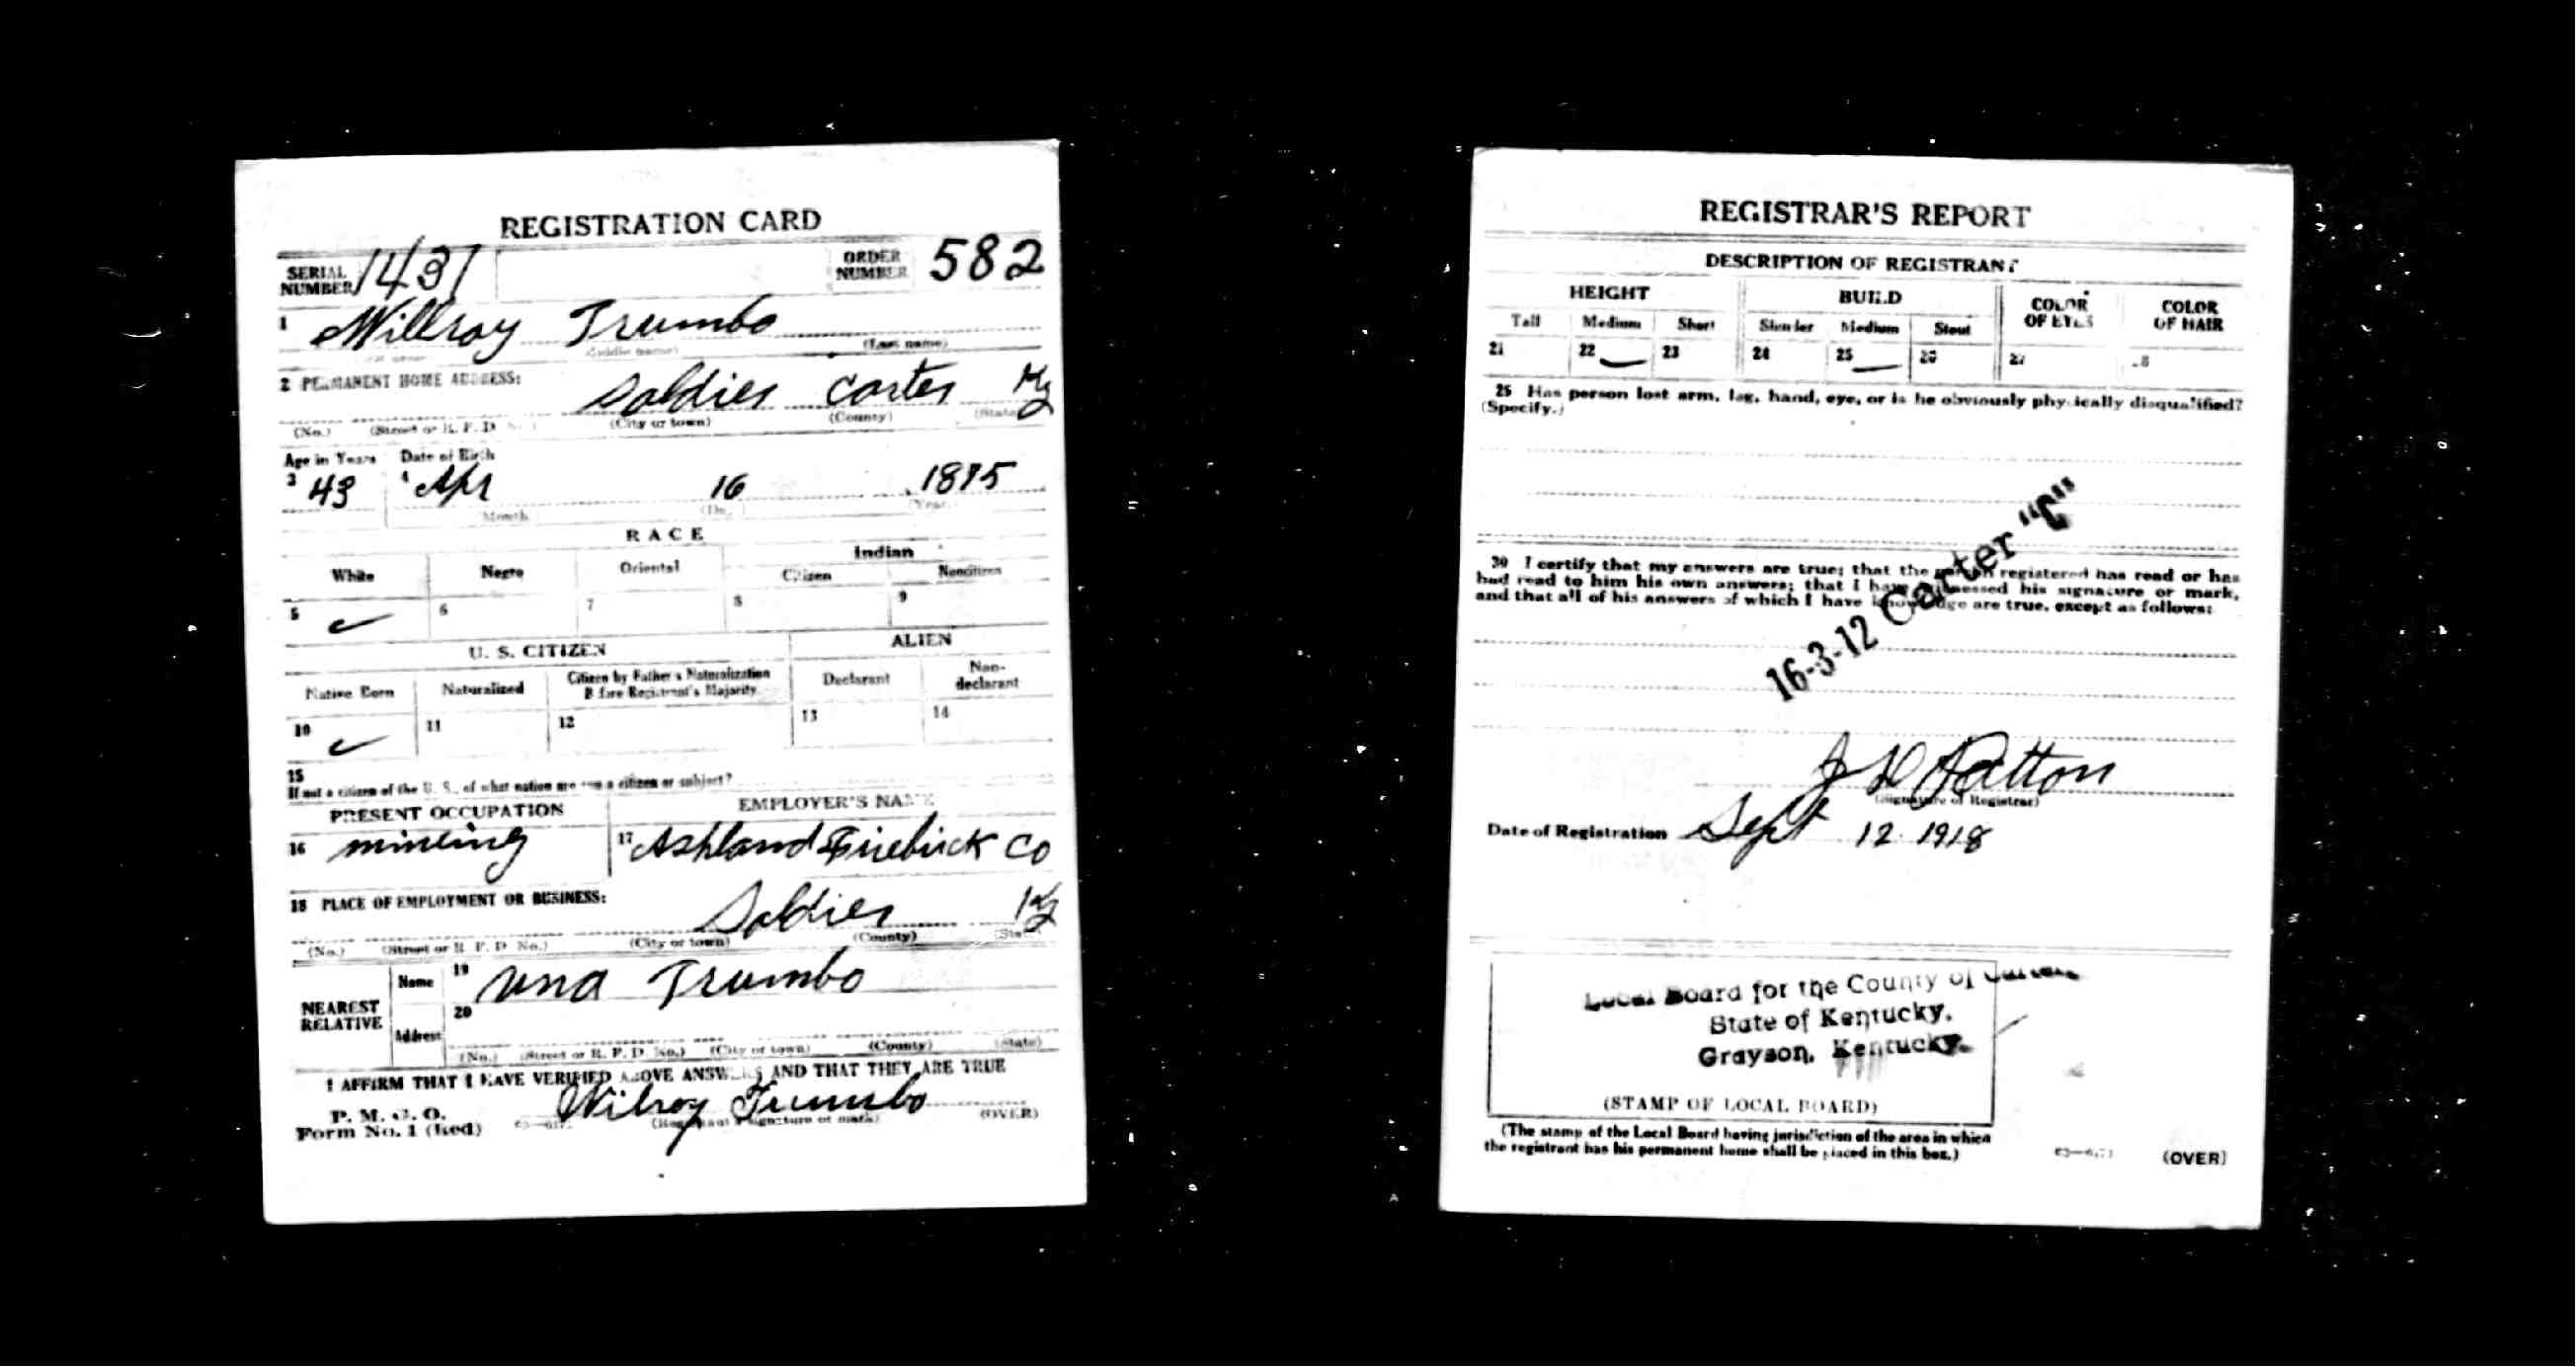 REGISTRATION CARD
SERIAL NUMBER 1431 ORDER NUMBER 582
1 Willroy Trumbo
(Last name)
2 PERMANENT HOME ADDRESS:
Soldier Carter Ky
(No.) (Street or R. F. D. No.) (City or town) (County) (State)
Age in Years Date of Birth
3 43 4 Apr 16 1875
Month (Day) (Year)
RACE
White Negro Oriental Indian
Citizen Noncitizen
5 ✓ 6 7 8 9
U. S. CITIZEN ALIEN
Native Born Naturalized Citizen by Father's Naturalization Before Registrant's Majority Declarant Non-declarant
10 ✓ 11 12 13 14
15
If not a citizen of the U. S., of what nation are you a citizen or subject?
PRESENT OCCUPATION EMPLOYER'S NAME
16 mineing 17 Ashland Firebrick Co
18 PLACE OF EMPLOYMENT OR BUSINESS:
Soldier Ky
(No.) (Street or R. F. D. No.) (City or town) (County) (State)
NEAREST RELATIVE Name 19 Una Trumbo
Address 20
(No.) (Street or R. F. D. No.) (City or town) (County) (State)
I AFFIRM THAT I HAVE VERIFIED ABOVE ANSWERS AND THAT THEY ARE TRUE
P. M. G. O.
Form No. 1 (Red) Wilroy Trumbo
(Registrant's signature or mark) (OVER)
REGISTRAR'S REPORT
DESCRIPTION OF REGISTRANT
HEIGHT BUILD COLOR OF EYES COLOR OF HAIR
Tall Medium Short Slender Medium Stout
21 22 23 24 25 26 27 28
29 Has person lost arm, leg, hand, eye, or is he obviously physically disqualified?
(Specify.)
30 I certify that my answers are true; that the person registered has read or has
had read to him his own answers; that I have witnessed his signature or mark,
and that all of his answers of which I have knowledge are true, except as follows:
16-3-12 Carter "C"
J D Patton
(Signature of Registrar)
Date of Registration Sept 12 1918
Local Board for the County of Carter
State of Kentucky.
Grayson, Kentucky.
(STAMP OF LOCAL BOARD)
(The stamp of the Local Board having jurisdiction of the area in which
the registrant has his permanent home shall be placed in this box.)
(OVER)